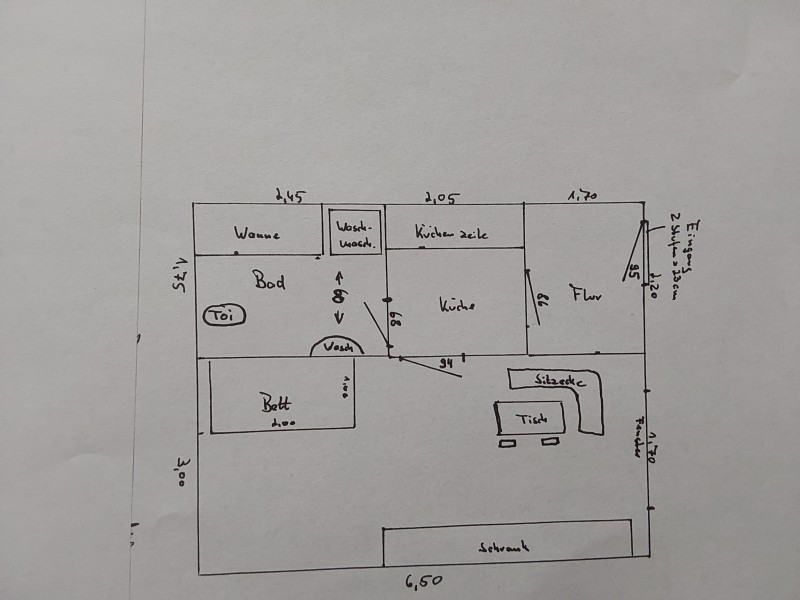 2,45
2,05
1,70
Wanne
Wasch-
masch.
Küchenzeile
Eingang
2 Stufen = 23cm
1,75
Bad
60
Toi
Wasch
Küche
68
86
Flur
95
1,20
94
Bett
1,00
2,00
Sitzecke
Tisch
Fenster
1,70
3,00
Schrank
6,50